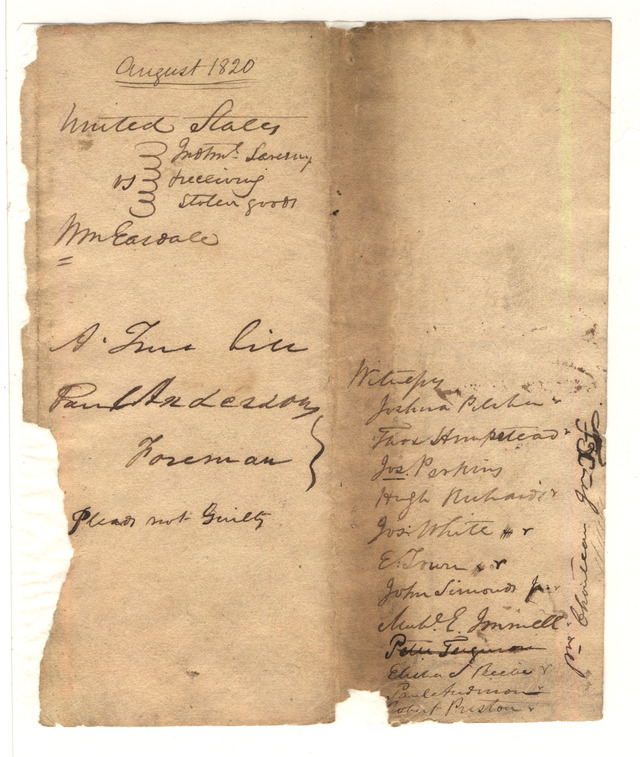 August 1820
United States
vs
Indtmt. Larceny
receiving
stolen goods
Wm Easdale
A True bill
Paul Anderson
Foreman
Pleads not Guilty
Witnesses
Joshua Pilcher
Thos Hempstead
Jos. Perkins
Hugh Richards
Jos. White
E. Town
John Simonds Jr
E. Immell
Peter Ferguson
Elisha S Beebe
Paul Anderson
Robert Preston
Chouteau Jr